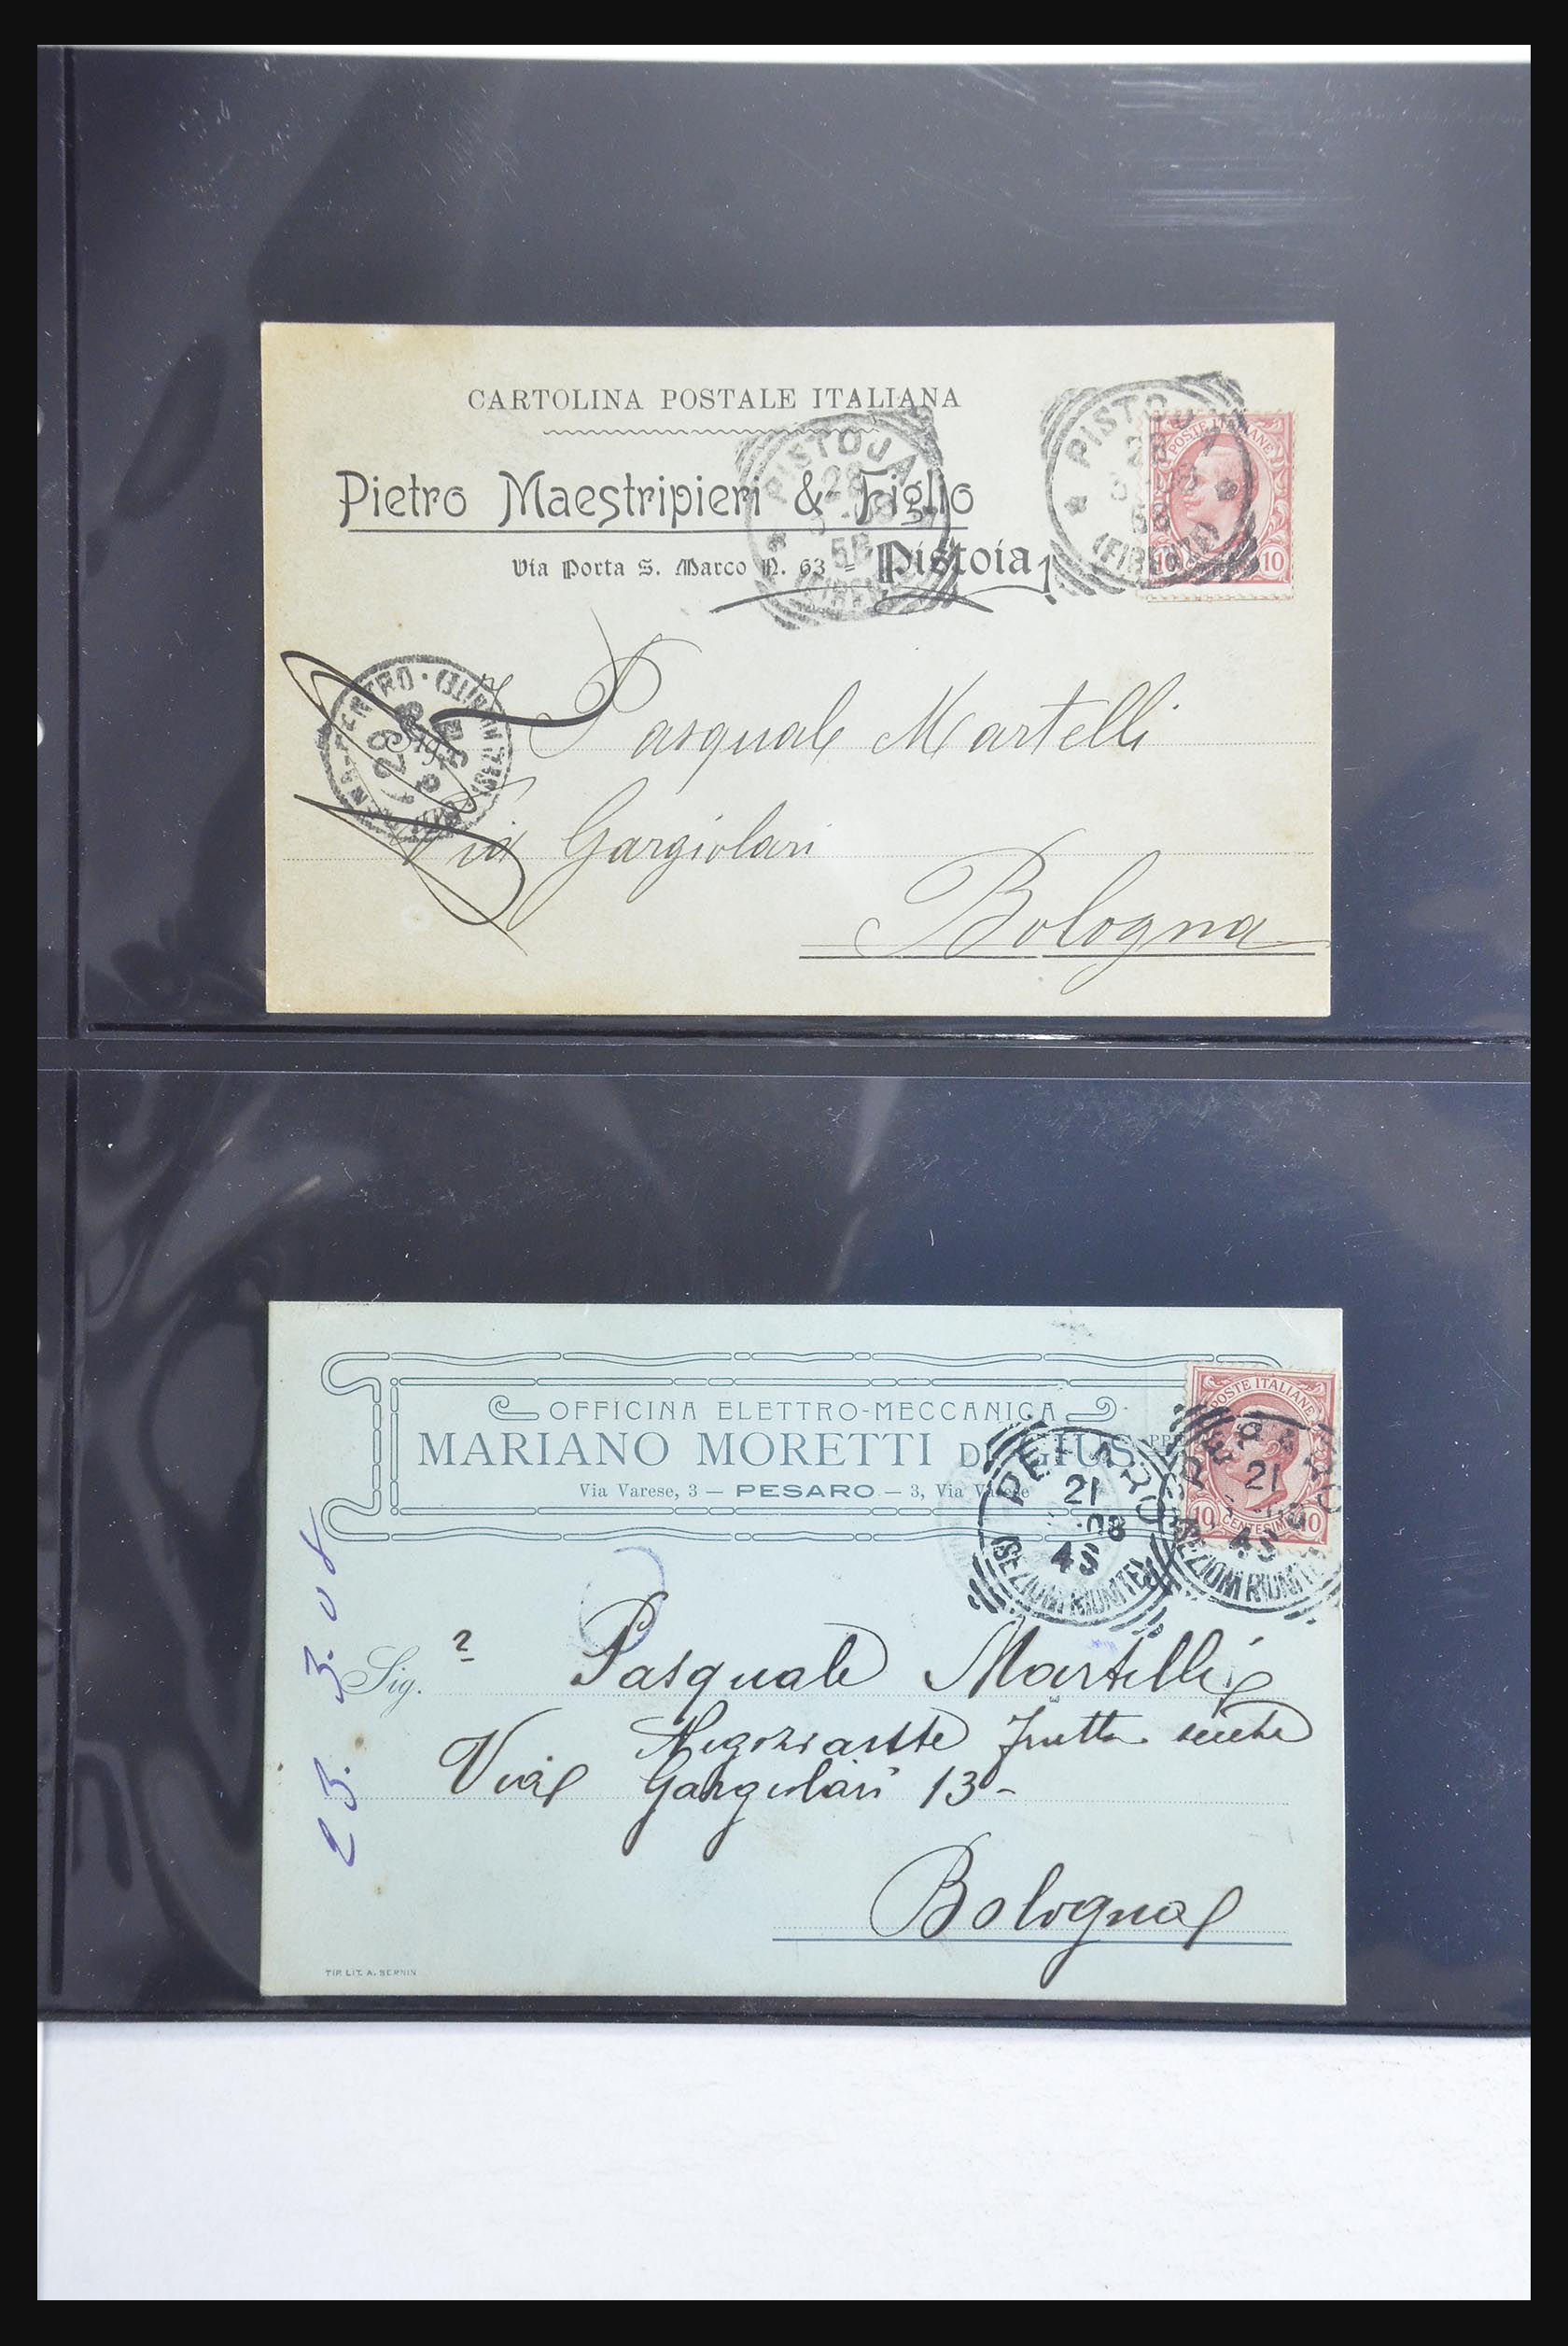 CARTOLINA POSTALE ITALIANA
Pietro Maestripieri & Figlio
Via Porta S. Marco N. 63 - Pistoia
PISTOJA
28
08
5S
(FIRENZE)
PISTOJA
28
5S
(FIRENZE)
POSTE ITALIANE
10 10
Sig. Pasquale Martelli
Via Gargiolari
Bologna
OFFICINA ELETTRO-MECCANICA
MARIANO MORETTI DI GIUS
Via Varese, 3 — PESARO — 3, Via Varese
PESARO
21
08
4S
(SEZIONI RIUNITE)
PESARO
21
4S
(SEZIONI RIUNITE)
POSTE ITALIANE
10 CENTESIMI 10
23. 3. 08
Sig. Pasquale Martelli
Negoziante frutta secche
Via Gargiolari 13-
Bologna
TIP. LIT. A. SERNIN